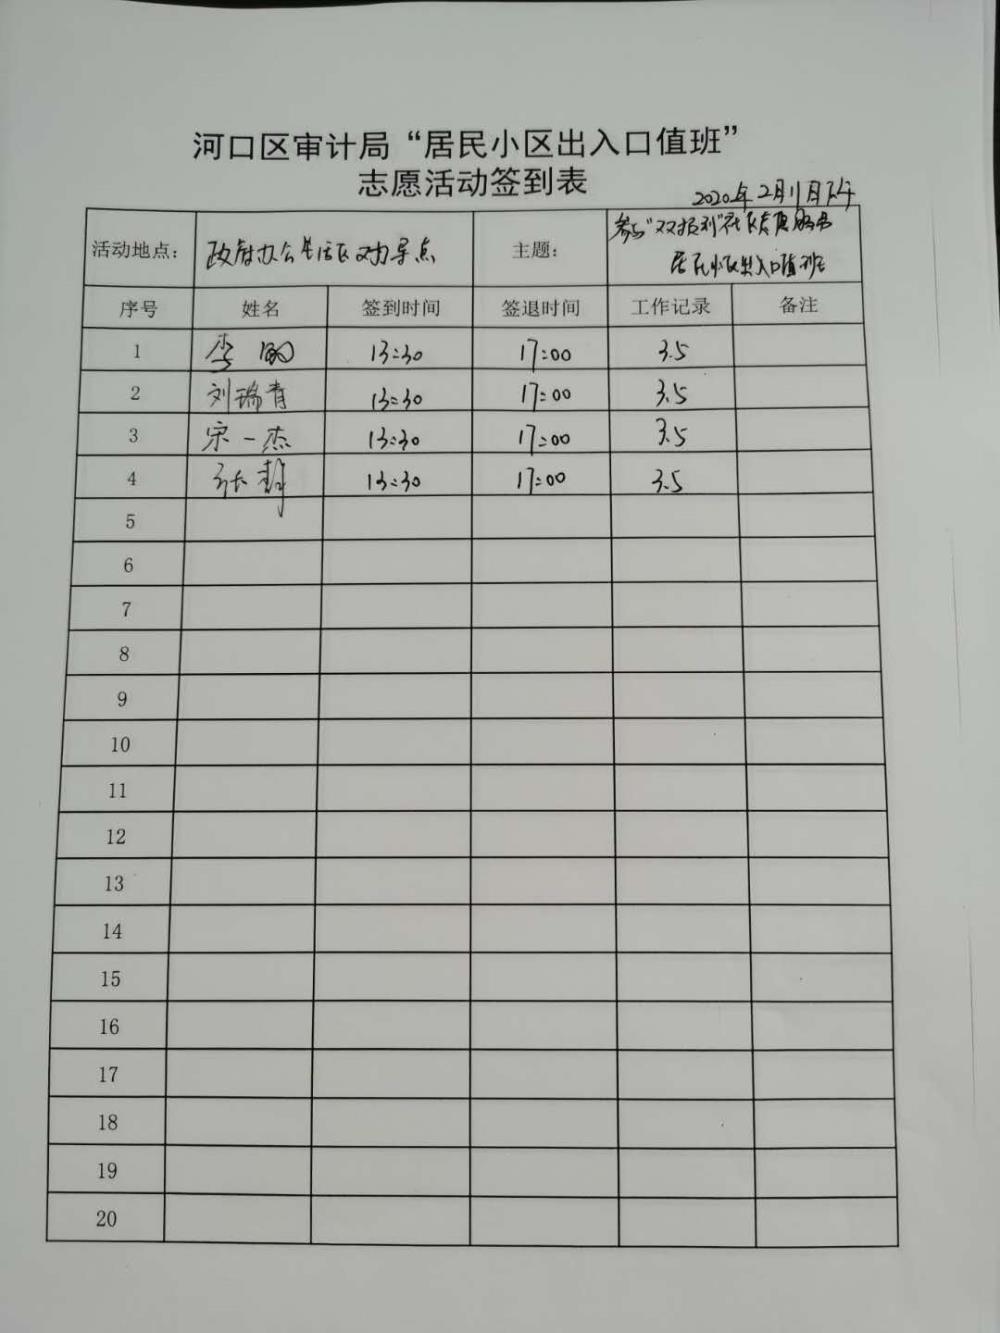 河口区审计局“居民小区出入口值班”
志愿活动签到表
2020年2月11日下午
活动地点： 政府办公生活区劝导点 主题： 参与“双报到”社区志愿服务
居民小区出入口值班
序号 姓名 签到时间 签退时间 工作记录 备注
1 李 13:30 17:00 3.5
2 刘瑞青 13:30 17:00 3.5
3 宋一杰 13:30 17:00 3.5
4 张静 13:30 17:00 3.5
5
6
7
8
9
10
11
12
13
14
15
16
17
18
19
20